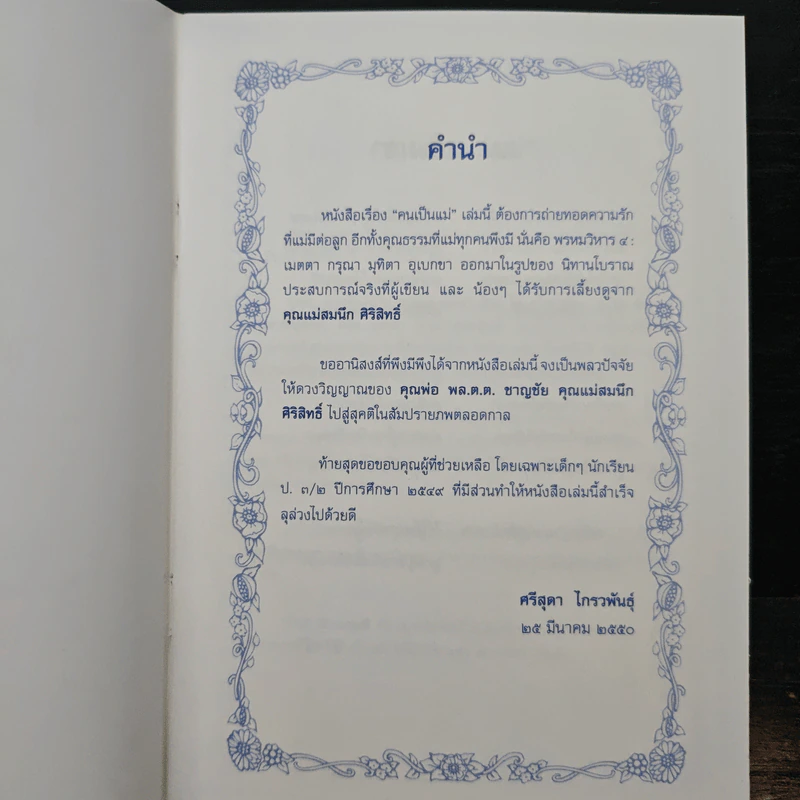 คำนำ
หนังสือเรื่อง "คนเป็นแม่" เล่มนี้ ต้องการถ่ายทอดความรัก
ที่แม่มีต่อลูก อีกทั้งคุณธรรมที่แม่ทุกคนพึงมี นั่นคือ พรหมวิหาร ๔:
เมตตา กรุณา มุทิตา อุเบกขา ออกมาในรูปของ นิทานโบราณ
ประสบการณ์จริงที่ผู้เขียน และ น้องๆ ได้รับการเลี้ยงดูจาก
คุณแม่สมนึก ศิริสิทธิ์
ขออานิสงส์ที่พึงมีพึงได้จากหนังสือเล่มนี้ จงเป็นพลวปัจจัย
ให้ดวงวิญญาณของ คุณพ่อ พล.ต.ต. ชาญชัย คุณแม่สมนึก
ศิริสิทธิ์ ไปสู่สุคติในสัมปรายภพตลอดกาล
ท้ายสุดขอขอบคุณผู้ที่ช่วยเหลือ โดยเฉพาะเด็กๆ นักเรียน
ป. ๓/๒ ปีการศึกษา ๒๕๔๙ ที่มีส่วนทำให้หนังสือเล่มนี้สำเร็จ
ลุล่วงไปด้วยดี
ศรีสุดา ไกรวพันธุ์
๒๕ มีนาคม ๒๕๕๐